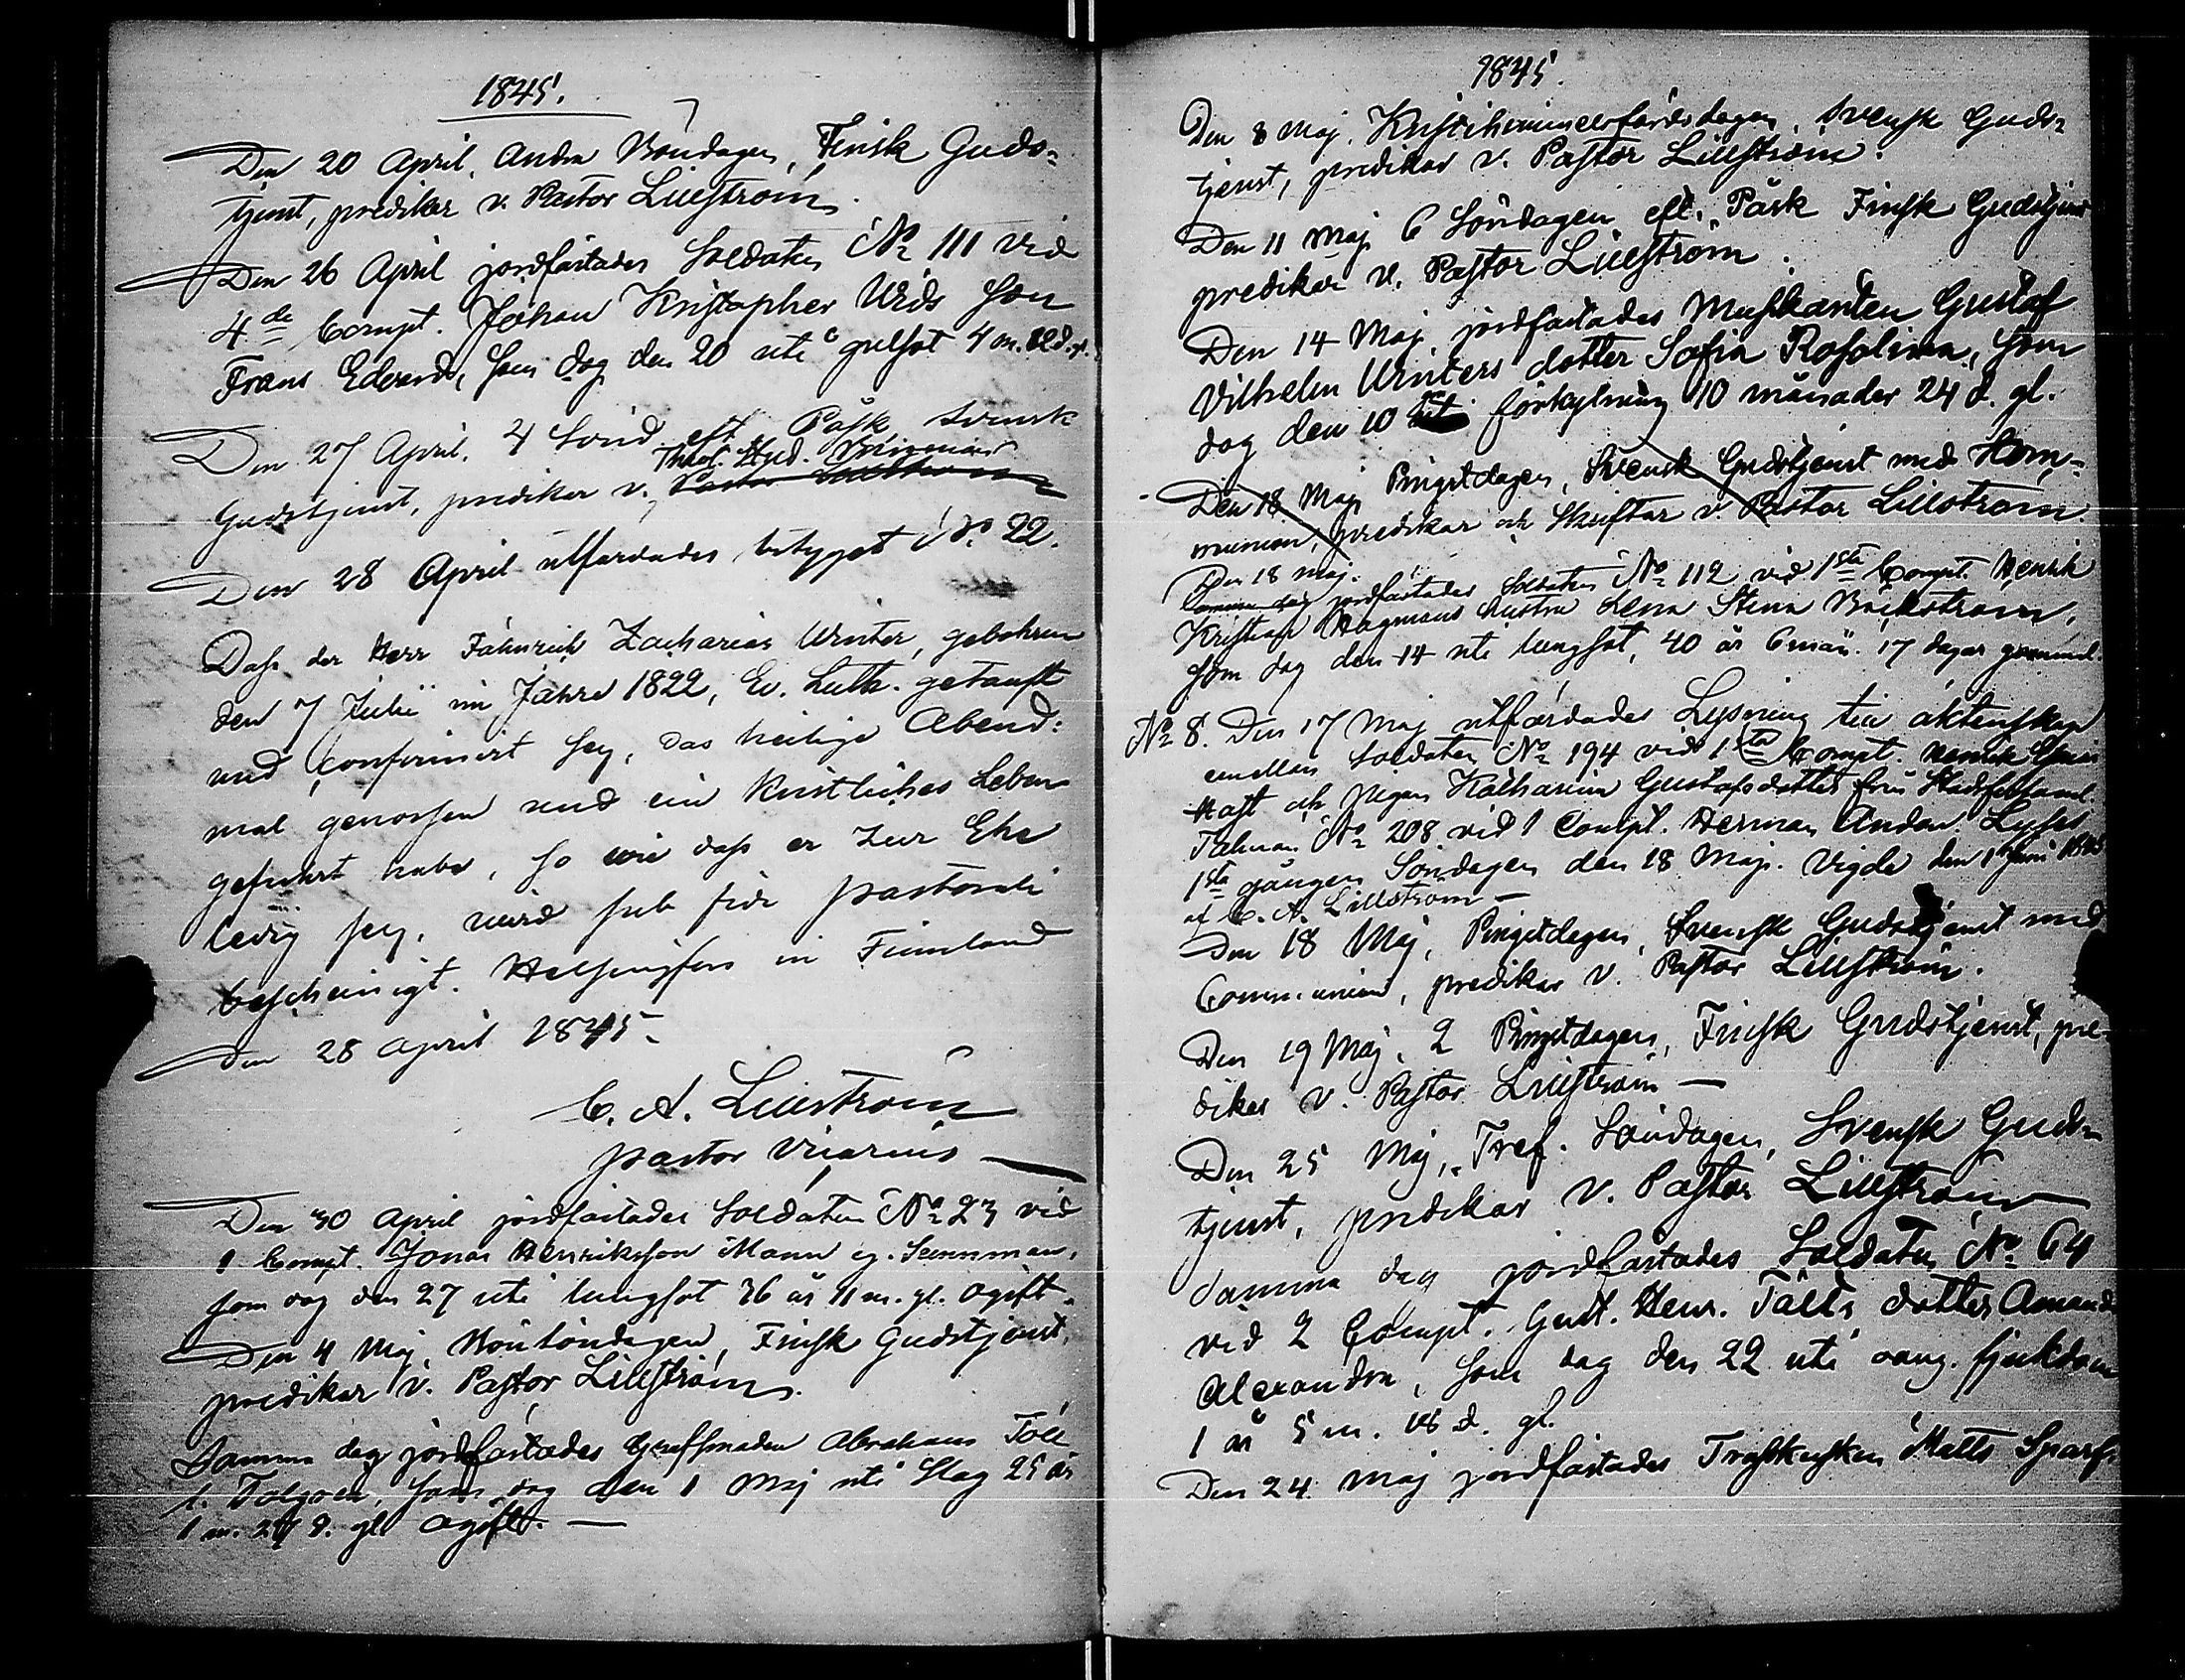 1845.
Den 20 April, Andra Böndagen, Finsk Guds-
tjenst, predikar v. Pastor Lillström.
Den 26 April jordfästades Soldaten No 111 vid
4de Compt. Johan Kristopher Wids son
Frans Edvard, som dog den 20 uti gulsot 4 m.
Den 27 April. 4 Sönd. eft. Påsk Svensk
Theol. Stud.
Gudstjenst, predikar v. Pastor Lillström
Den 28 April utfärdades betyget No 22.
Dass der Herr Fähnrich Zacharias Winter, gebohren
den 7 Julii im Jahre 1822, Ev. Luth. getauft
und confirmirt sey, das heilige Abend-
mal genossen und ein kristliches Leben
geführt habe, so wie dass er zur Ehe
ledig sey, wird sub fide pastorali
bescheinigt. Helsingfors in Finnland
den 28 April 1845.
C. A. Lillström
pastor vicarius
Den 30 April jordfästades Soldaten No 23 vid
1 Compt. Jonas Henriksson Mann
som dog den 27 uti lungsot 36 år 11 m. gl. ogift.
Den 4 Maj, Bönsöndagen, Finsk Gudstjenst,
predikar v. Pastor Lillström.
Samma dag jordfästades Abraham
som dog den 1 Maj uti Slag 25 år
1 m. 27 d. gl. ogift.
1845.
Den 8 Maj. Kristihimmelsfärdsdagen, Svensk Guds-
tjenst, predikar v. Pastor Lillström.
Den 11 Maj 6 Söndagen eft. Påsk Finsk Gudstjenst
predikar v. Pastor Lillström.
Den 14 Maj jordfästades Musikanten Gustaf
Vilhelm Winters dotter Sofia Rosalina, som
dog den 10 förkylning 10 månader 24 d. gl.
Den 18 Maj Pingstdagen, Svensk Gudstjenst med Kom-
munion, predikar och Skriftar v. Pastor Lillström.
Den 18 Maj.
Samma dag jordfästades Soldaten No 112 vid 1sta Compt. Henrik
Kristian Hagmans hustru Lena Stina Bäckström,
som dog den 14 uti lungsot, 40 år 6 mån. 17 dagar gammal.
No 8. Den 17 Maj utfärdades Lysning till äktenskap
emellan Soldaten No 194 vid 1sta Kompt. Henrik
Hast och Pigan Katharina Gustafsdotter från
No 208 vid 1 Compt. Herman Lystes
1sta gången Söndagen den 18 Maj. Vigde den 1 Juni 1845
af C. A. Lillström
Den 18 Maj, Pingstdagen, Svensk Gudstjenst med
Communion, predikar v. Pastor Lillström.
Den 19 Maj, 2 Pingstdagen, Finsk Gudstjenst, pre-
dikar v. Pastor Lillström
Den 25 Maj, Tref. Söndagen, Svensk Guds-
tjenst, predikar v. Pastor Lillström
Samma dag jordfästades Soldaten No 64
vid 2 Compt. Gust. Henr. Tälts dotter Amanda
Alexandra, som dog den 22 uti sjukdom
1 år 5 m. 18 d. gl.
Den 24 Maj jordfästades Matts